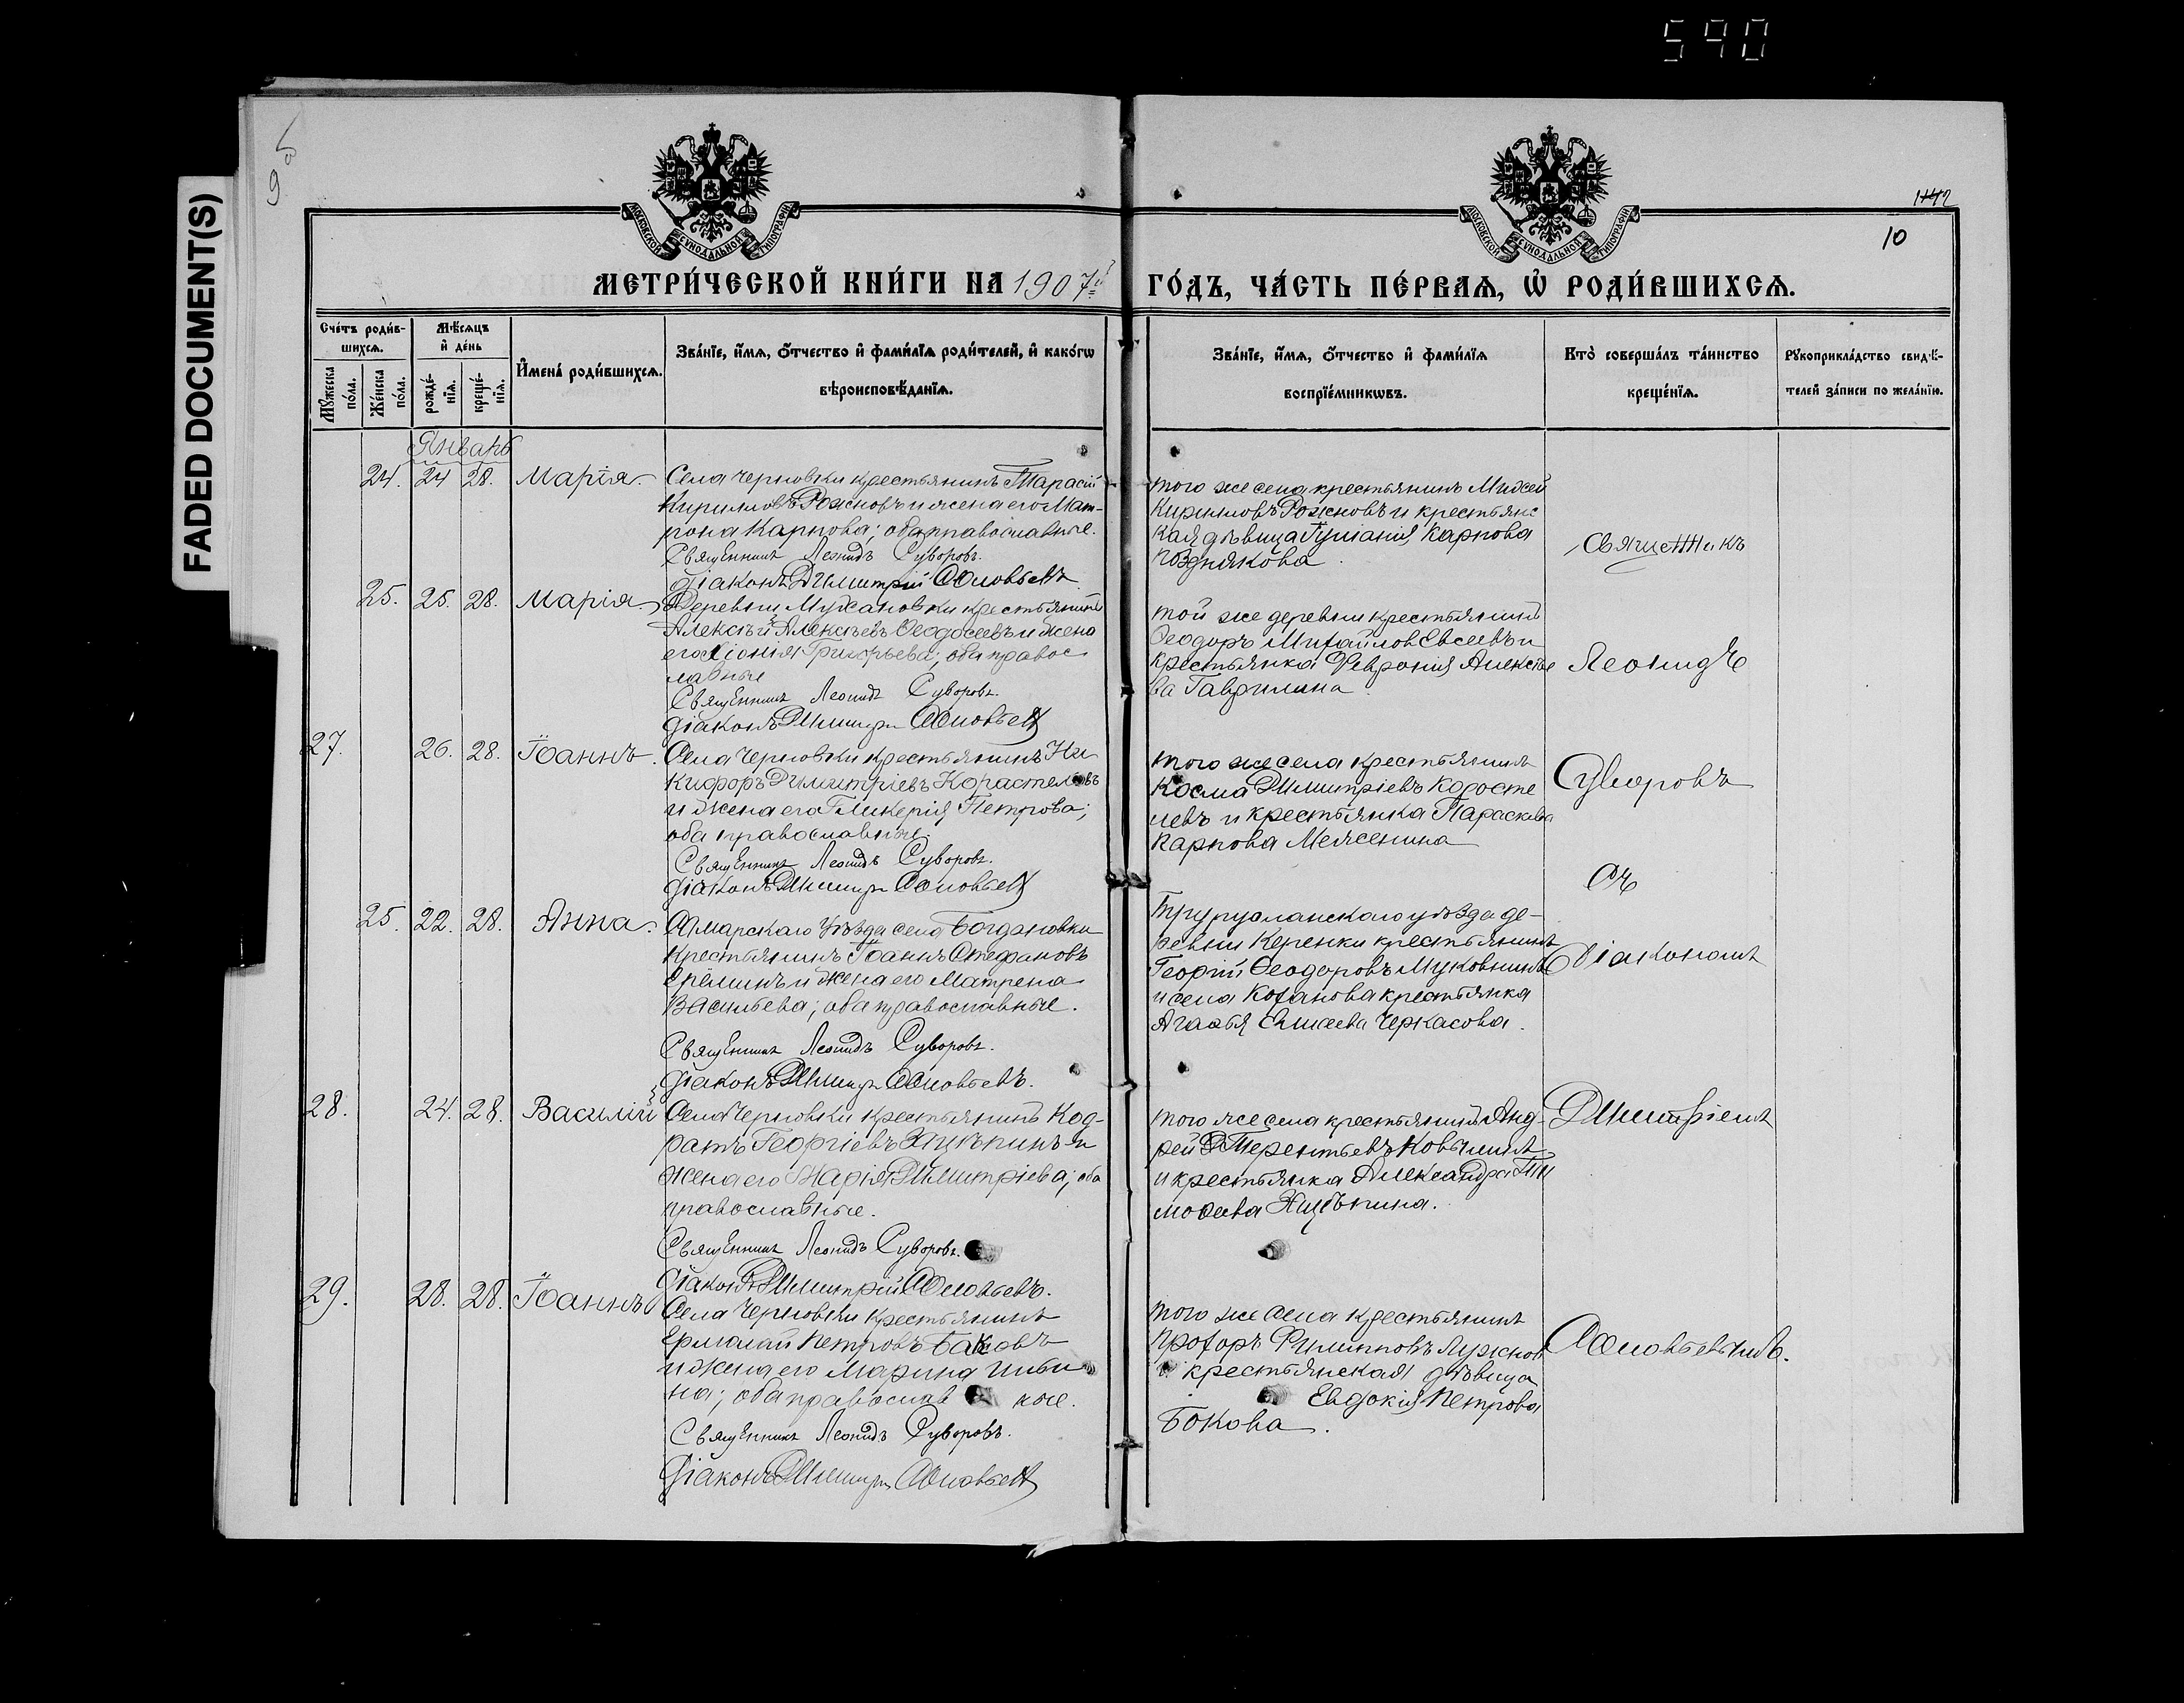 590
FADED DOCUMENT(S)
9 об
1142
10
МОСКОВСКОЙ СѴНОДАЛЬНОЙ ТИПОГРАФІИ
МОСКОВСКОЙ СѴНОДАЛЬНОЙ ТИПОГРАФІИ
МЕТРИ́ЧЕСКОЙ КНИ́ГИ НА 1907й ГО́ДЪ, ЧА́СТЬ ПЕ́РВАѦ, Ѡ҆ РОДИ́ВШИХСѦ.
Сче́тъ роди́в-
шихсѧ.
Мꙋ́жеска по́ла.
Же́нска по́ла.
Мѣ́сѧцъ
и҆ де́нь
рожде́-
нїѧ.
креще́-
нїѧ.
И҆мена̀ роди́вшихсѧ.
Зва́нїе, и҆́мѧ, ѻ҆́тчество и҆ фами́лїѧ роди́телей, и҆ како́гѡ
вѣроисповѣ́данїѧ.
Зва́нїе, и҆́мѧ, ѻ҆́тчество и҆ фами́лїѧ
воспрїе́мникѡвъ.
Кто̀ соверша́лъ та́инство
креще́нїѧ.
Рꙋкоприкла́дство свидѣ́-
телей за́писи по жела́нїю.
Январь
24. 24 28. Марія.
Села Черновки крестьянинъ Тарасій
Кирилловъ Рожновъ и жена его Мат-
рона Карпова; оба православные.
Священникъ Леонидъ Суворовъ.
Діаконъ Димитрій Соловьевъ
того же села крестьянинъ Мисей
Кирилловъ Рожновъ и крестьянс
кая дѣвица Іуліанія Карпова
Позднякова.
25. 25. 28. Марія.
Деревни Мухановки крестьянинъ
Алексѣй Алексѣевъ Ѳеодосеевъ и жена
его Хіонія Григорьева; оба правос
лавные
Священникъ Леонидъ Суворовъ.
Діаконъ Димитрій Соловьевъ
той же деревни крестьянинъ
Ѳеодоръ Михайловъ Евсеевъ и
крестьянка Феврония Алексѣе
ва Гаврилина.
27. 26. 28. Іоаннъ.
Села Черновки крестьянинъ Ни
кифоръ Димитріевъ Корастелевъ
и жена его Гликерія Петрова;
оба православные.
Священникъ Леонидъ Суворовъ.
Діаконъ Димитрій Соловьевъ
того же села крестьянинъ
Косма Димитріевъ Коросте
левъ и крестьянка Параскева
Карпова Мелясенина
25. 22. 28. Анна.
Самарскаго Уѣзда села Богдановки
крестьянинъ Іоаннъ Стефановъ
Ерёминъ и жена его Матрена
Васильева; оба православные.
Священникъ Леонидъ Суворовъ.
Діаконъ Димитрій Соловьевъ.
уѣзда де-
ревни Керенки крестьянинъ
Георгій Ѳеодоровъ Муковнинъ
и села Коханова крестьянка
Агаѳья Елисеева Черкасова.
28. 24. 28. Василій
Села Черновки крестьянинъ Код-
ратъ Георгіевъ и
жена его Марія Димитріева; оба
православные.
Священникъ Леонидъ Суворовъ.
Діаконъ Димитрій Соловьевъ.
того же села крестьянинъ Анд-
рей Терентьевъ Ковылинъ
и крестьянка Александра Ти
моѳеева
29. 28. 28. Іоаннъ
Села Черновки крестьянинъ
Ермолай Петровъ Баковъ
и жена его Марина Ильи
на; оба православ ные.
Священникъ Леонидъ Суворовъ.
Діаконъ Димитрій Соловьевъ
того же села крестьянинъ
Прохоръ Филипповъ Лужновъ
и крестьянская дѣвица
Евдокія Петрова
Бокова.
Священникъ
Леонидъ
Суворовъ
съ
Діакономъ
Димитріемъ
Соловьевымъ.